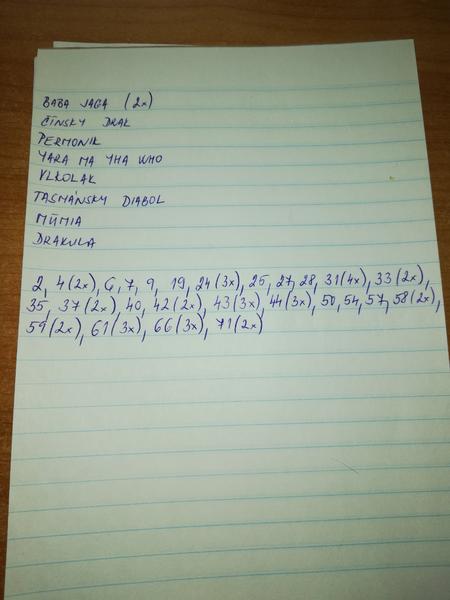 BABA JAGA (2x)
ČÍNSKY DRAK
PERMONIK
YARA MA YHA WHO
VLKOLAK
TASMÁNSKY DIABOL
MÚMIA
DRAKULA
2, 4(2x), 6, 7, 9, 19, 24(3x), 25, 27, 28, 31(4x), 33(2x),
35, 37(2x), 40, 42(2x), 43(3x), 44(3x), 50, 54, 57, 58(2x),
59(2x), 61(3x), 66(3x), 71(2x)